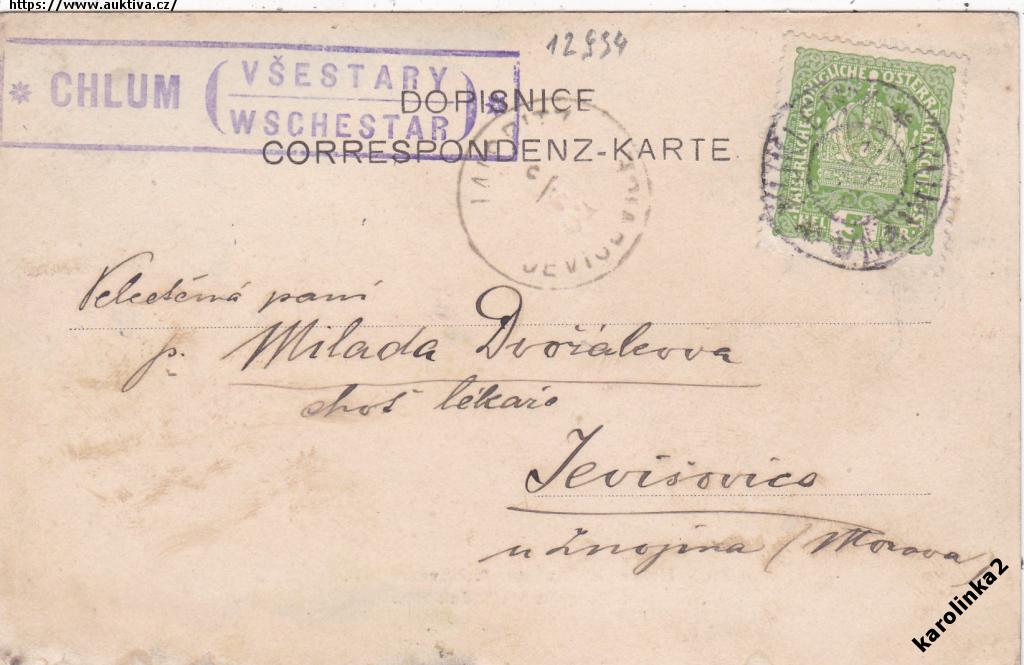 https://www.auktiva.cz/
12934
* CHLUM ( VŠESTARY
WSCHESTAR ) *
DOPISNICE
CORRESPONDENZ-KARTE
KAISERLICHE KÖNIGLICHE ÖSTERR
HEL 5
Velectěná paní
p. Milada Dvořákova
choť lékaře
Jevišovice
u Znojma (Morava)
karolinka2